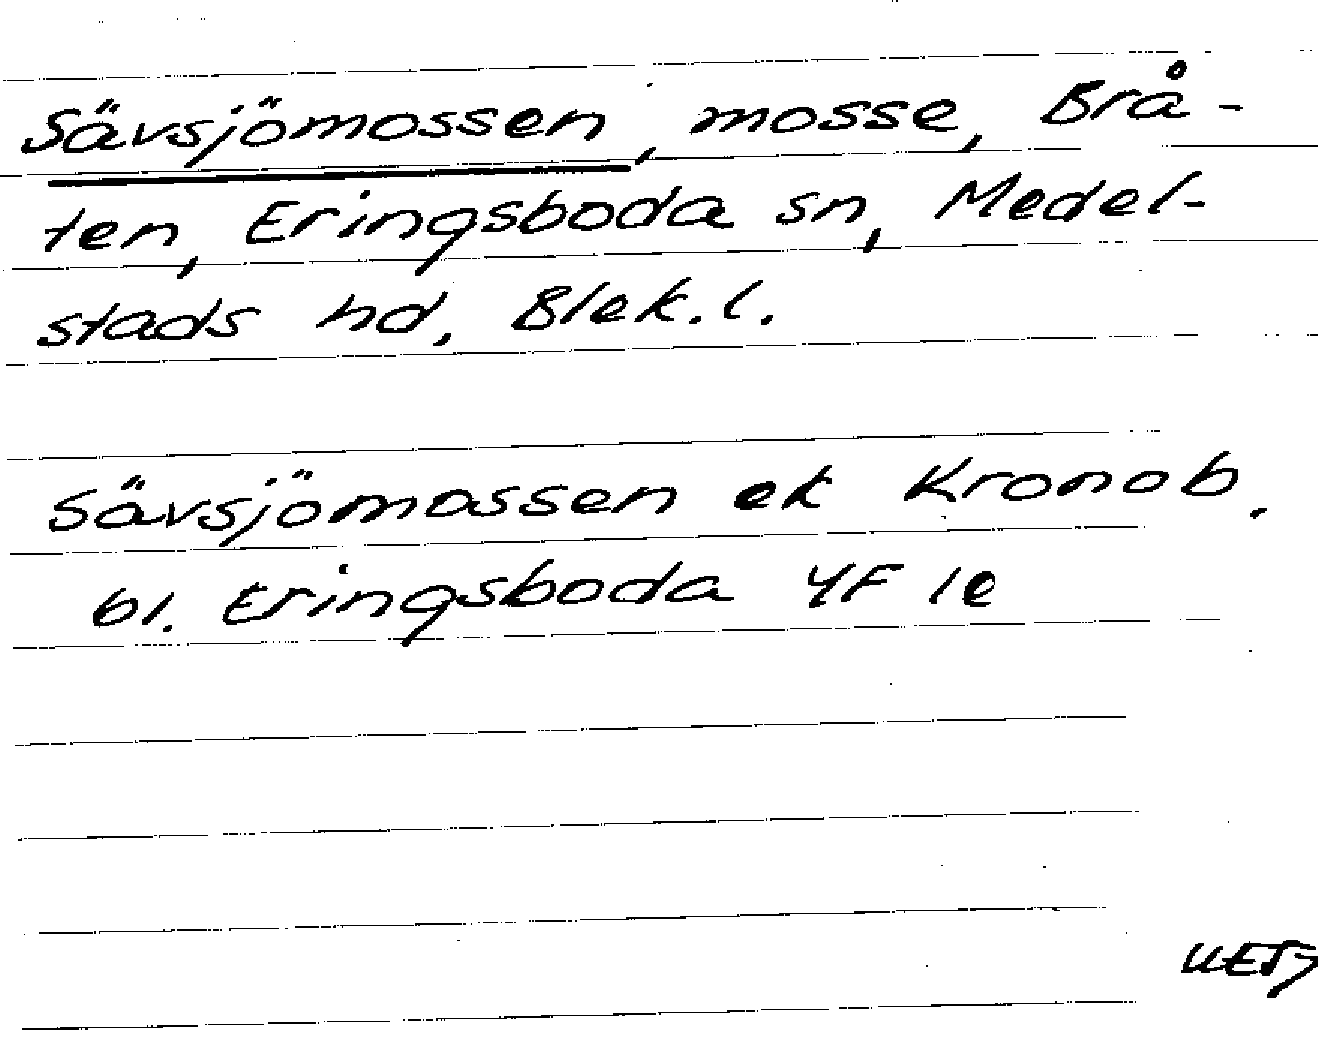 Sävsjömossen, mosse, Brå-
ten, Eringsboda sn, Medel-
stads hd, Blek. l.
Sävsjömossen ek Kronob.
bl. Eringsboda 4F 1e